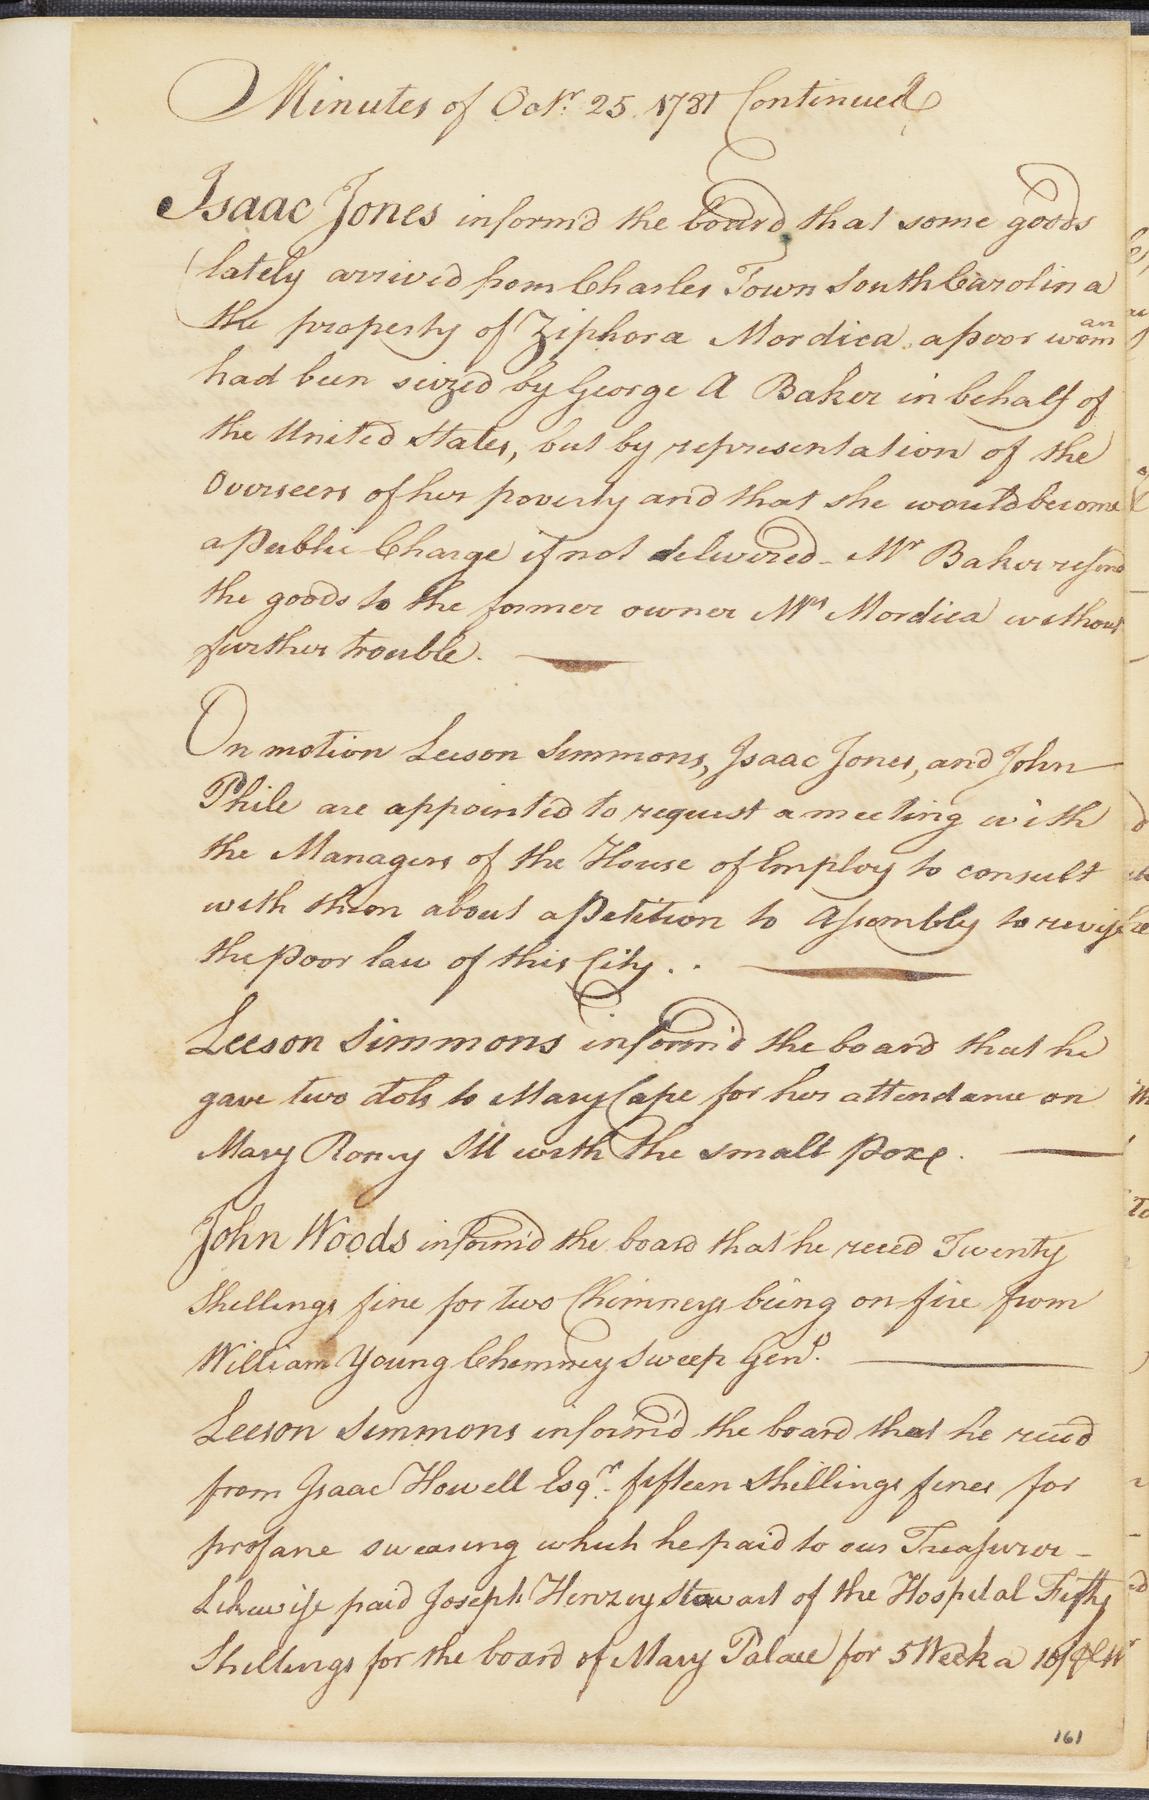 Minutes of Octr. 25. 1781 Continued
Isaac Jones inform'd the board that some goods
lately arrived from Charles Town South Carolina
the property of Ziphora Mordica a poor woman
had been seized by George A Baker in behalf of
the United States, but by representation of the
Overseers of her poverty and that she would become
a Public Charge if not delivered - Mr Baker
the goods to the former owner Mrs Mordica without
further trouble.
On motion Leeson Simmons, Isaac Jones, and John
Phile are appointed to request a meeting with
the Managers of the House of Employ to consult
with them about a Petition to Assembly to revise
the poor law of this City . .
Leeson Simmons inform'd the board that he
gave two dols to Mary Cape for her attendance on
Mary Roney Ill with the small pox.
John Woods inform'd the board that he reced Twenty
Shillings fine for two Chimneys being on fire from
William Young Chimney Sweep Genl.
Leeson Simmons inform'd the board that he recd
from Isaac Howell Esqr. fifteen Shillings fines for
profane swearing which he paid to our Treasurer -
Likewise paid Joseph Henzey Stewart of the Hospital Fifty
Shillings for the board of Mary Palace for 5 Week a 10/
161